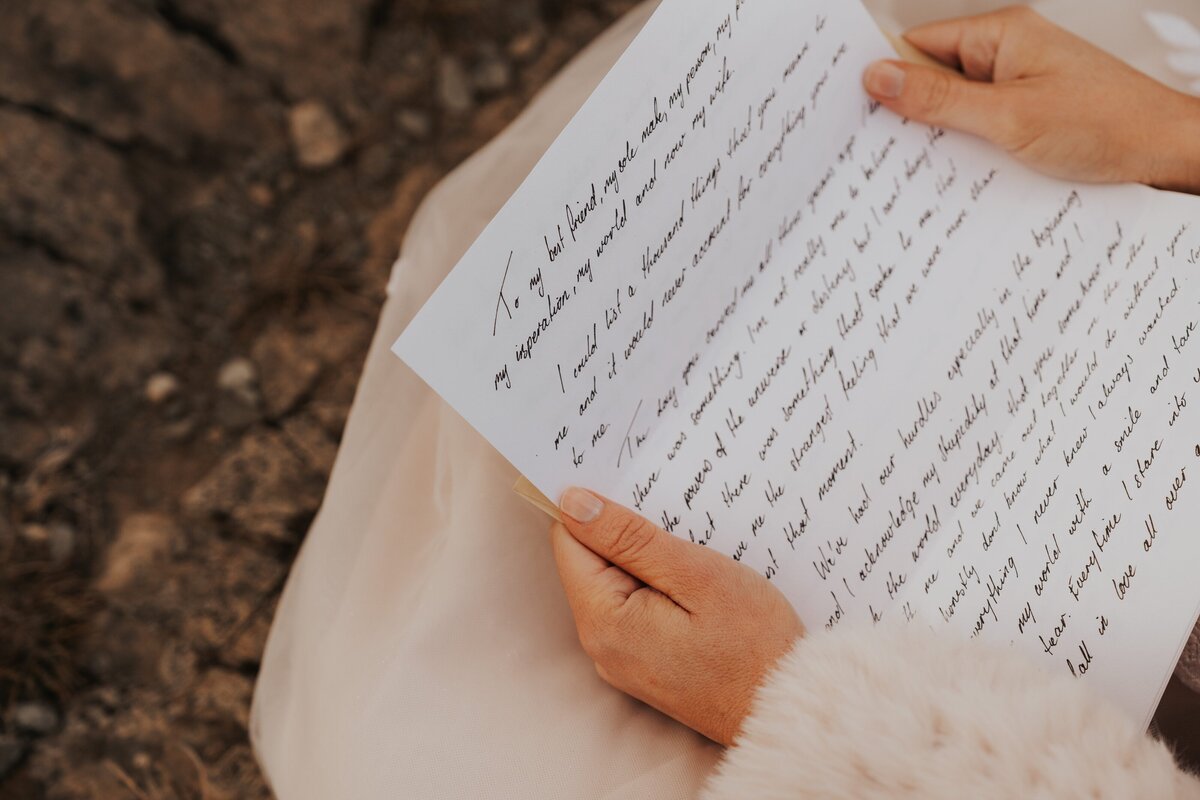 To my best friend, my sole mate, my person, my
my insperation, my world and now my wife.
I could list a thousand things that you mean to
me and it would never account for everything you are
to me.
The day you served me all those years ago
there was something. I'm not really one to believe
the powers of the universe or destiny but I cant deny the
that there was something that spoke to me, that
me the strangest feeling that we were more than
that moment.
We've had our hurdles especially in the beginning
and I acknowledge my stupidity at that time and I
the world everyday that you somehow
me and we came out together the other
honestly dont know what I would do without you.
everything I never knew I always wanted.
my world with a smile and
tear. Everytime I stare into
fall in love all over